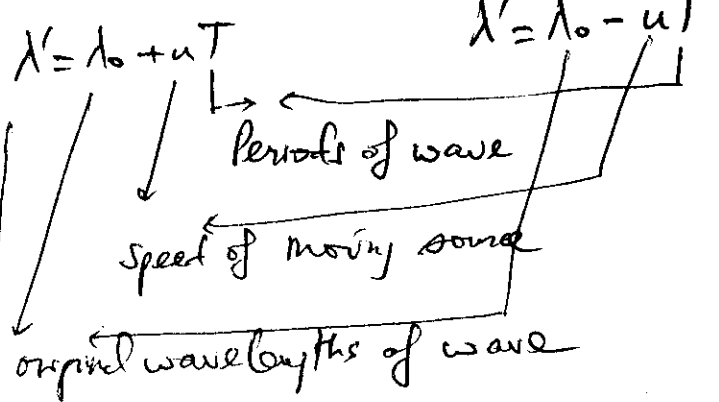 λ' = λ₀ + uT
λ' = λ₀ - uT
Periods of wave
Speed of moving source
original wavelengths of wave